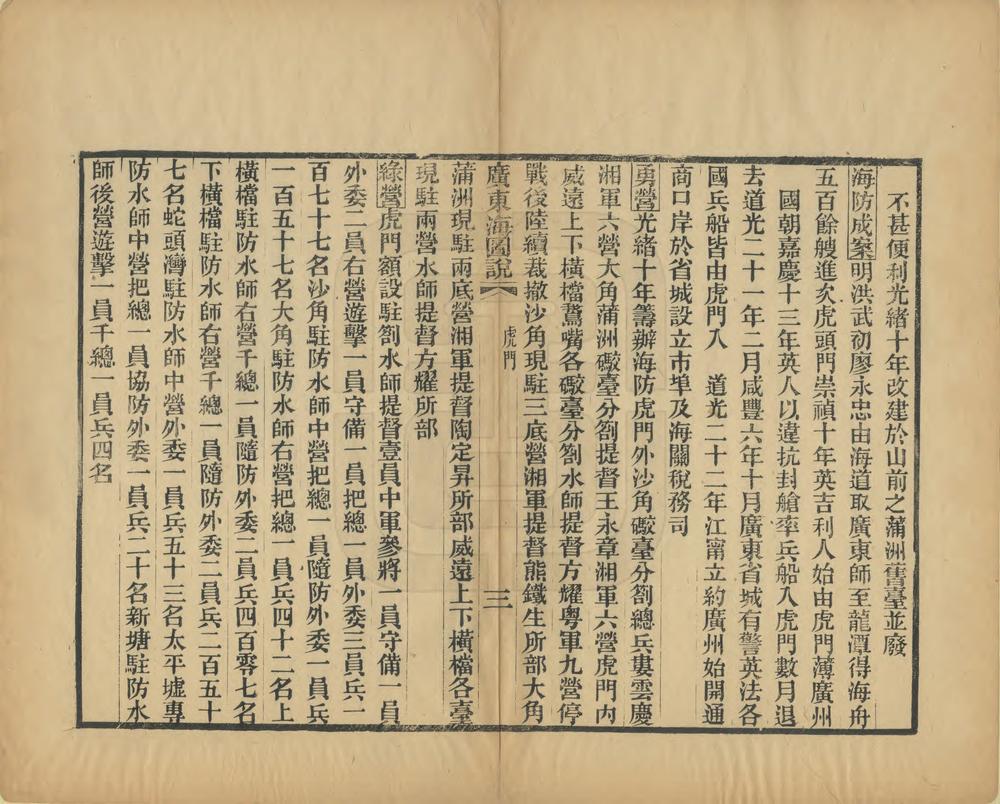 不甚便利光緒十年改建於山前之蒲洲舊臺並廢
海防成案明洪武初廖永忠由海道取廣東師至龍潭得海舟
五百餘艘進次虎頭門崇禎十年英吉利人始由虎門薄廣州
國朝嘉慶十三年英人以違抗封艙率兵船入虎門數月退
去道光二十一年二月咸豐六年十月廣東省城有警英法各
國兵船皆由虎門入　道光二十二年江甯立約廣州始開通
商口岸於省城設立市埠及海關稅務司
勇營光緒十年籌辦海防虎門外沙角礮臺分劄總兵婁雲慶
湘軍六營大角蒲洲礮臺分劄提督王永章湘軍六營虎門內
威遠上下橫檔鵞嘴各礮臺分劄水師提督方耀粵軍九營停
戰後陸續裁撤沙角現駐三底營湘軍提督熊鐵生所部大角
廣東海圖說　虎門　三
蒲洲現駐兩底營湘軍提督陶定昇所部威遠上下橫檔各臺
現駐兩營水師提督方耀所部
綠營虎門額設駐劄水師提督壹員中軍參將一員守備一員
外委二員右營遊擊一員守備一員把總一員外委三員兵一
百七十七名沙角駐防水師中營把總一員隨防外委一員兵
一百五十七名大角駐防水師右營把總一員兵四十二名上
橫檔駐防水師右營千總一員隨防外委二員兵四百零七名
下橫檔駐防水師右營千總一員隨防外委二員兵二百五十
七名蛇頭灣駐防水師中營外委一員兵五十三名太平墟專
防水師中營把總一員協防外委一員兵二十名新塘駐防水
師後營遊擊一員千總一員兵四名